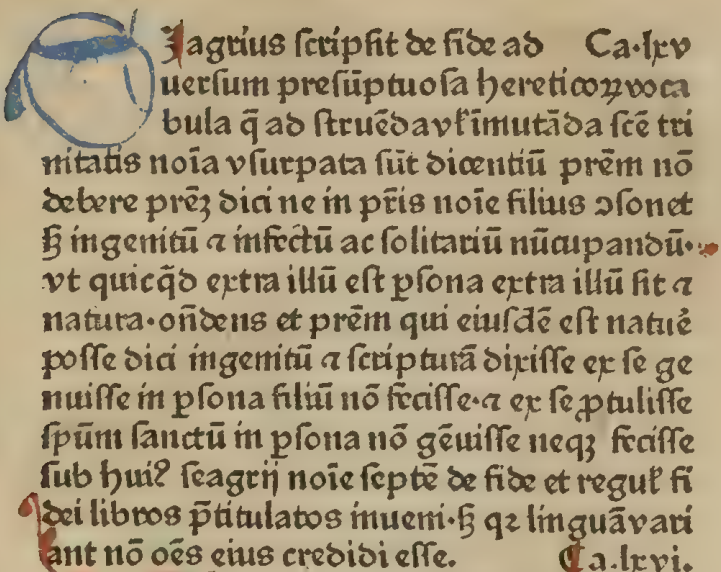 iagrius ſcripſit de fide ad Ca·lxv
uerſum preſūptuoſa hereticoꝝ voca
bula q̄ ad ſtruēda vł īmutāda ſcē tri
nitatis noīa vſurpata ſūt dicentiū prēm nō
debere prēꝫ dici ne in pr̄is noīe filius ↄſonet
ſꝫ ingenitū ⁊ infectū ac ſolitariū nūcupandū·
vt quicq̄d extra illū eſt ꝑſona extra illū ſit ⁊
natura·oñdens et prēm qui eiuſdē eſt natuṙe
poſſe dici ingenitū ⁊ ſcripturā dixiſſe ex ſe ge
nuiſſe in ꝑſona filiū nō feciſſe·⁊ ex ſe ꝓtuliſſe
ſpūm ſanctū in ꝑſona nō gēuiſſe neqꝫ feciſſe
ſub huiꝰ ſeagrij noīe ſeptē de fide et reguł fi
dei libros p̄titulatos inueni·ſꝫ qꝛ linguā vari
ant nō oēs eius credidi eſſe. Ca.lxvi.